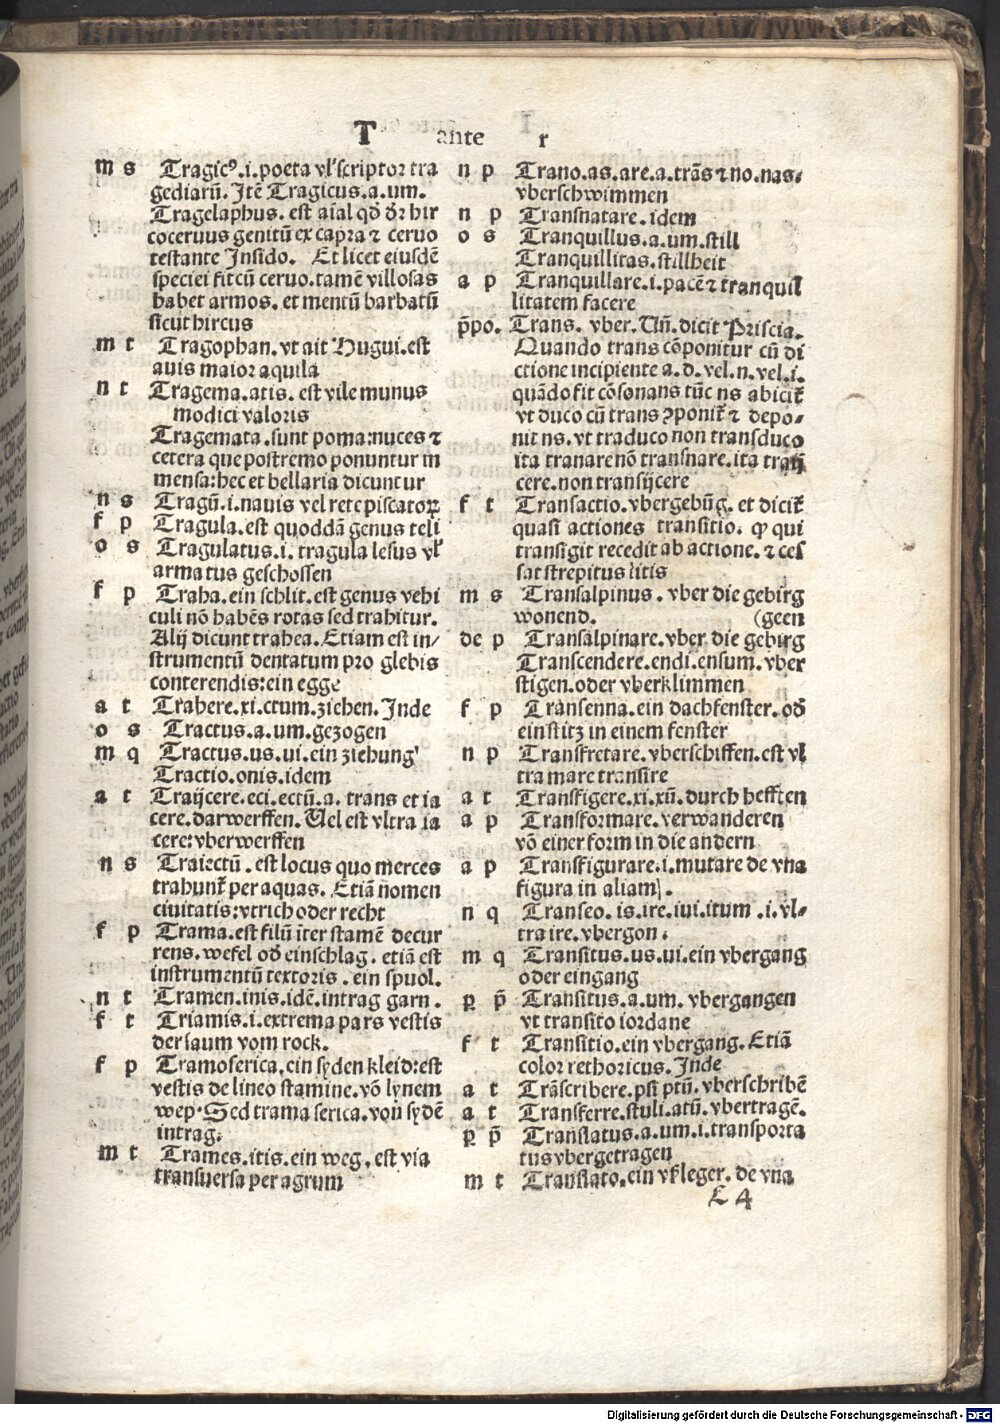 T ante r
m s Tragicꝰ.i.poeta vl' scriptor tra
gediarū. Jtē Tragicus.a.um.
Tragelaphus. est aīal qd̄ dr̄ hir
coceruus genitū ex capra ⁊ ceruo
testante Jnsido. Et licet eiusdē
speciei fit cū ceruo.tamē villosas
habet armos. et mentū barbatū
sicut hircus
m t Tragophan. vt ait Hugui.est
auis maior aquila
n t Tragema.atis. est vile munus
modici valoris
Tragemata.sunt poma:nuces ⁊
cetera que postremo ponuntur in
mensa:hec et bellaria dicuntur
n s Tragū.i.nauis vel rete piscatoꝝ
f p Tragula.est quoddā genus teli
o s Tragulatus.i. tragula lesus vl'
armatus geschossen
f p Traha.ein schlit.est genus vehi
culi nō habēs rotas sed trahitur.
Alij dicunt trahea. Etiam est in/
strumentū dentatum pro glebis
conterendis:ein egge
a t Trahere.xi.ctum.ziehen. Jnde
o s Tractus.a.um.gezogen
m q Tractus.us.ui.ein ziehung'
Tractio.onis.idem
a t Traijcere.eci.ectū.a. trans et ia
cere.darwerffen. Vel est vltra ia
cere:vberwerffen
n s Traiectū. est locus quo merces
trahunt᷑ per aquas. Etiā nomen
ciuitatis:vtrich oder recht
f p Trama.est filū īter stamē decur
rens.wefel od̄ einschlag. etiā est
instrumentū textoris. ein spuol.
n t Tramen.inis.idē.intrag garn.
f t Triamis.i.extrema pars vestis
der saum vom rock.
f p Tramoserica.ein syden kleid:est
vestis de lineo stamine. vō lynem
wep. Sed trama serica. von sydē
intrag.
m t Trames.itis.ein weg. est via
transuersa per agrum
n p Trano.as.are.a.trās ⁊ no.nas.
vberschwimmen
n p Transnatare. idem
o s Tranquillus.a.um.still
Tranquillitas.stillheit
a p Tranquillare.i.pacē ⁊ tranquil
litatem facere
p̄po. Trans. vber. Un̄.dicit Priscia.
Quando trans cōponitur cū di
ctione incipiente a.d.vel.n.vel.i.
quādo fit cōsonans tūc ns abicit᷑
vt duco cū trans ꝯponit᷑ ⁊ depo-
nit ns.vt traduco non transduco
ita tranare nō transnare.ita traij
cere.non transijcere
f t Transactio.vbergebūg. et dicit᷑
quasi actiones transitio. ꝙ qui
transigit recedit ab actione. ⁊ ces
sat strepitus litis
m s Transalpinus. vber die gebirg
wonend. (geen
de p Transalpinare.vber die gebirg
Transcendere.endi.ensum.vber
stigen.oder vberklimmen
f p Transenna.ein dachfenster.od̄
ein sitz in einem fenster
n p Transfretare.vberschiffen.est vl
tra mare transire
a t Transfigere.xi.xū.durch hefften
a p Transformare.verwanderen
vō einer form in die andern
a p Transfigurare.i.mutare de vna
figura in aliam.
n q Transeo.is.ire.iui.itum.i.vl-
tra ire.vbergon.
m q Transitus.us.ui.ein vbergang
oder eingang
ꝑ p̄ Transitus.a.um. vbergangen
vt transito iordane
f t Transitio.ein vbergang. Etiā
color rethoricus. Jnde
a t Trāscribere.psi ptū.vberschribē
a t Transferre.stuli.atū.vbertragē.
ꝑ p̄ Translatus.a.um.i.transporta
tus vbergetragen
m t Translato.ein vßleger. de vna
E 4
Digitalisierung gefördert durch die Deutsche Forschungsgemeinschaft - DFG